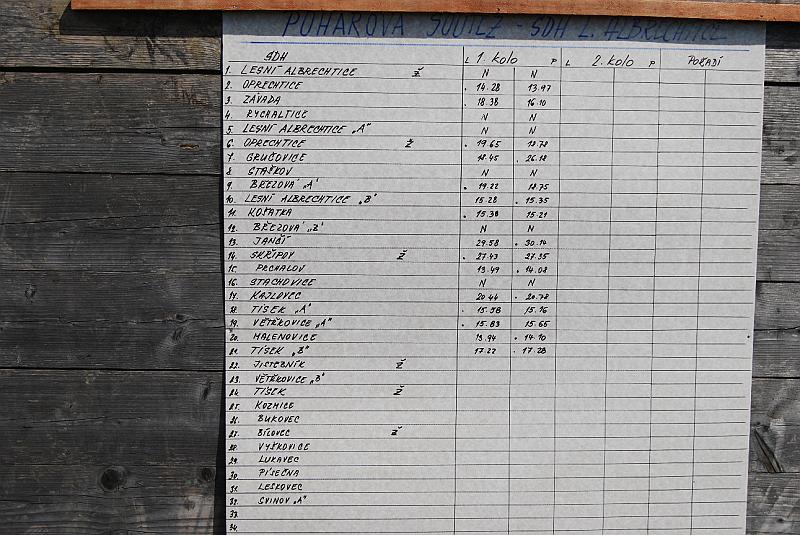 POHÁROVÁ SOUTĚŽ - SDH L. ALBRECHTICE
SDH L 1. kolo P L 2. kolo P POŘADÍ
1. LESNÍ ALBRECHTICE Ž N N
2. OPRECHTICE . 14.28 13.97
3. ZÁVADA . 18.38 16.10
4. RYCHALTICE N N
5. LESNÍ ALBRECHTICE „A" N N
6. OPRECHTICE Ž . 19.65 18.78
7. GRUČOVICE 18.45 . 26.18
8. STAŠKOV N N
9. BŘEZOVÁ „A" . 19.22 18.75
10. LESNÍ ALBRECHTICE „B" 15.28 . 15.35
11. KOŠATKA . 15.38 15.21
12. BŘEZOVÁ „B" N N
13. JANČÍ 29.58 . 30.14
14. SKŘIPOV Ž . 27.43 27.35
15. PRCHALOV 13.49 . 14.08
16. STACHOVICE N N
17. KAJLOVEC 20.44 . 20.78
18. TÍSEK „A" . 15.58 15.76
19. VĚTŘKOVICE „A" . 15.83 15.65
20. HALENOVICE 13.94 . 14.10
21. TÍSEK „B" 17.22 . 17.28
22. JISTEBNÍK Ž
23. VĚTŘKOVICE „B"
24. TÍSEK Ž
25. KOZMICE
26. BUKOVEC
27. BÍLOVEC Ž
28. VYŠKOVICE
29. LUKAVEC
30. PÍSEČNÁ
31. LESKOVEC
32. SVINOV „A"
33.
34.